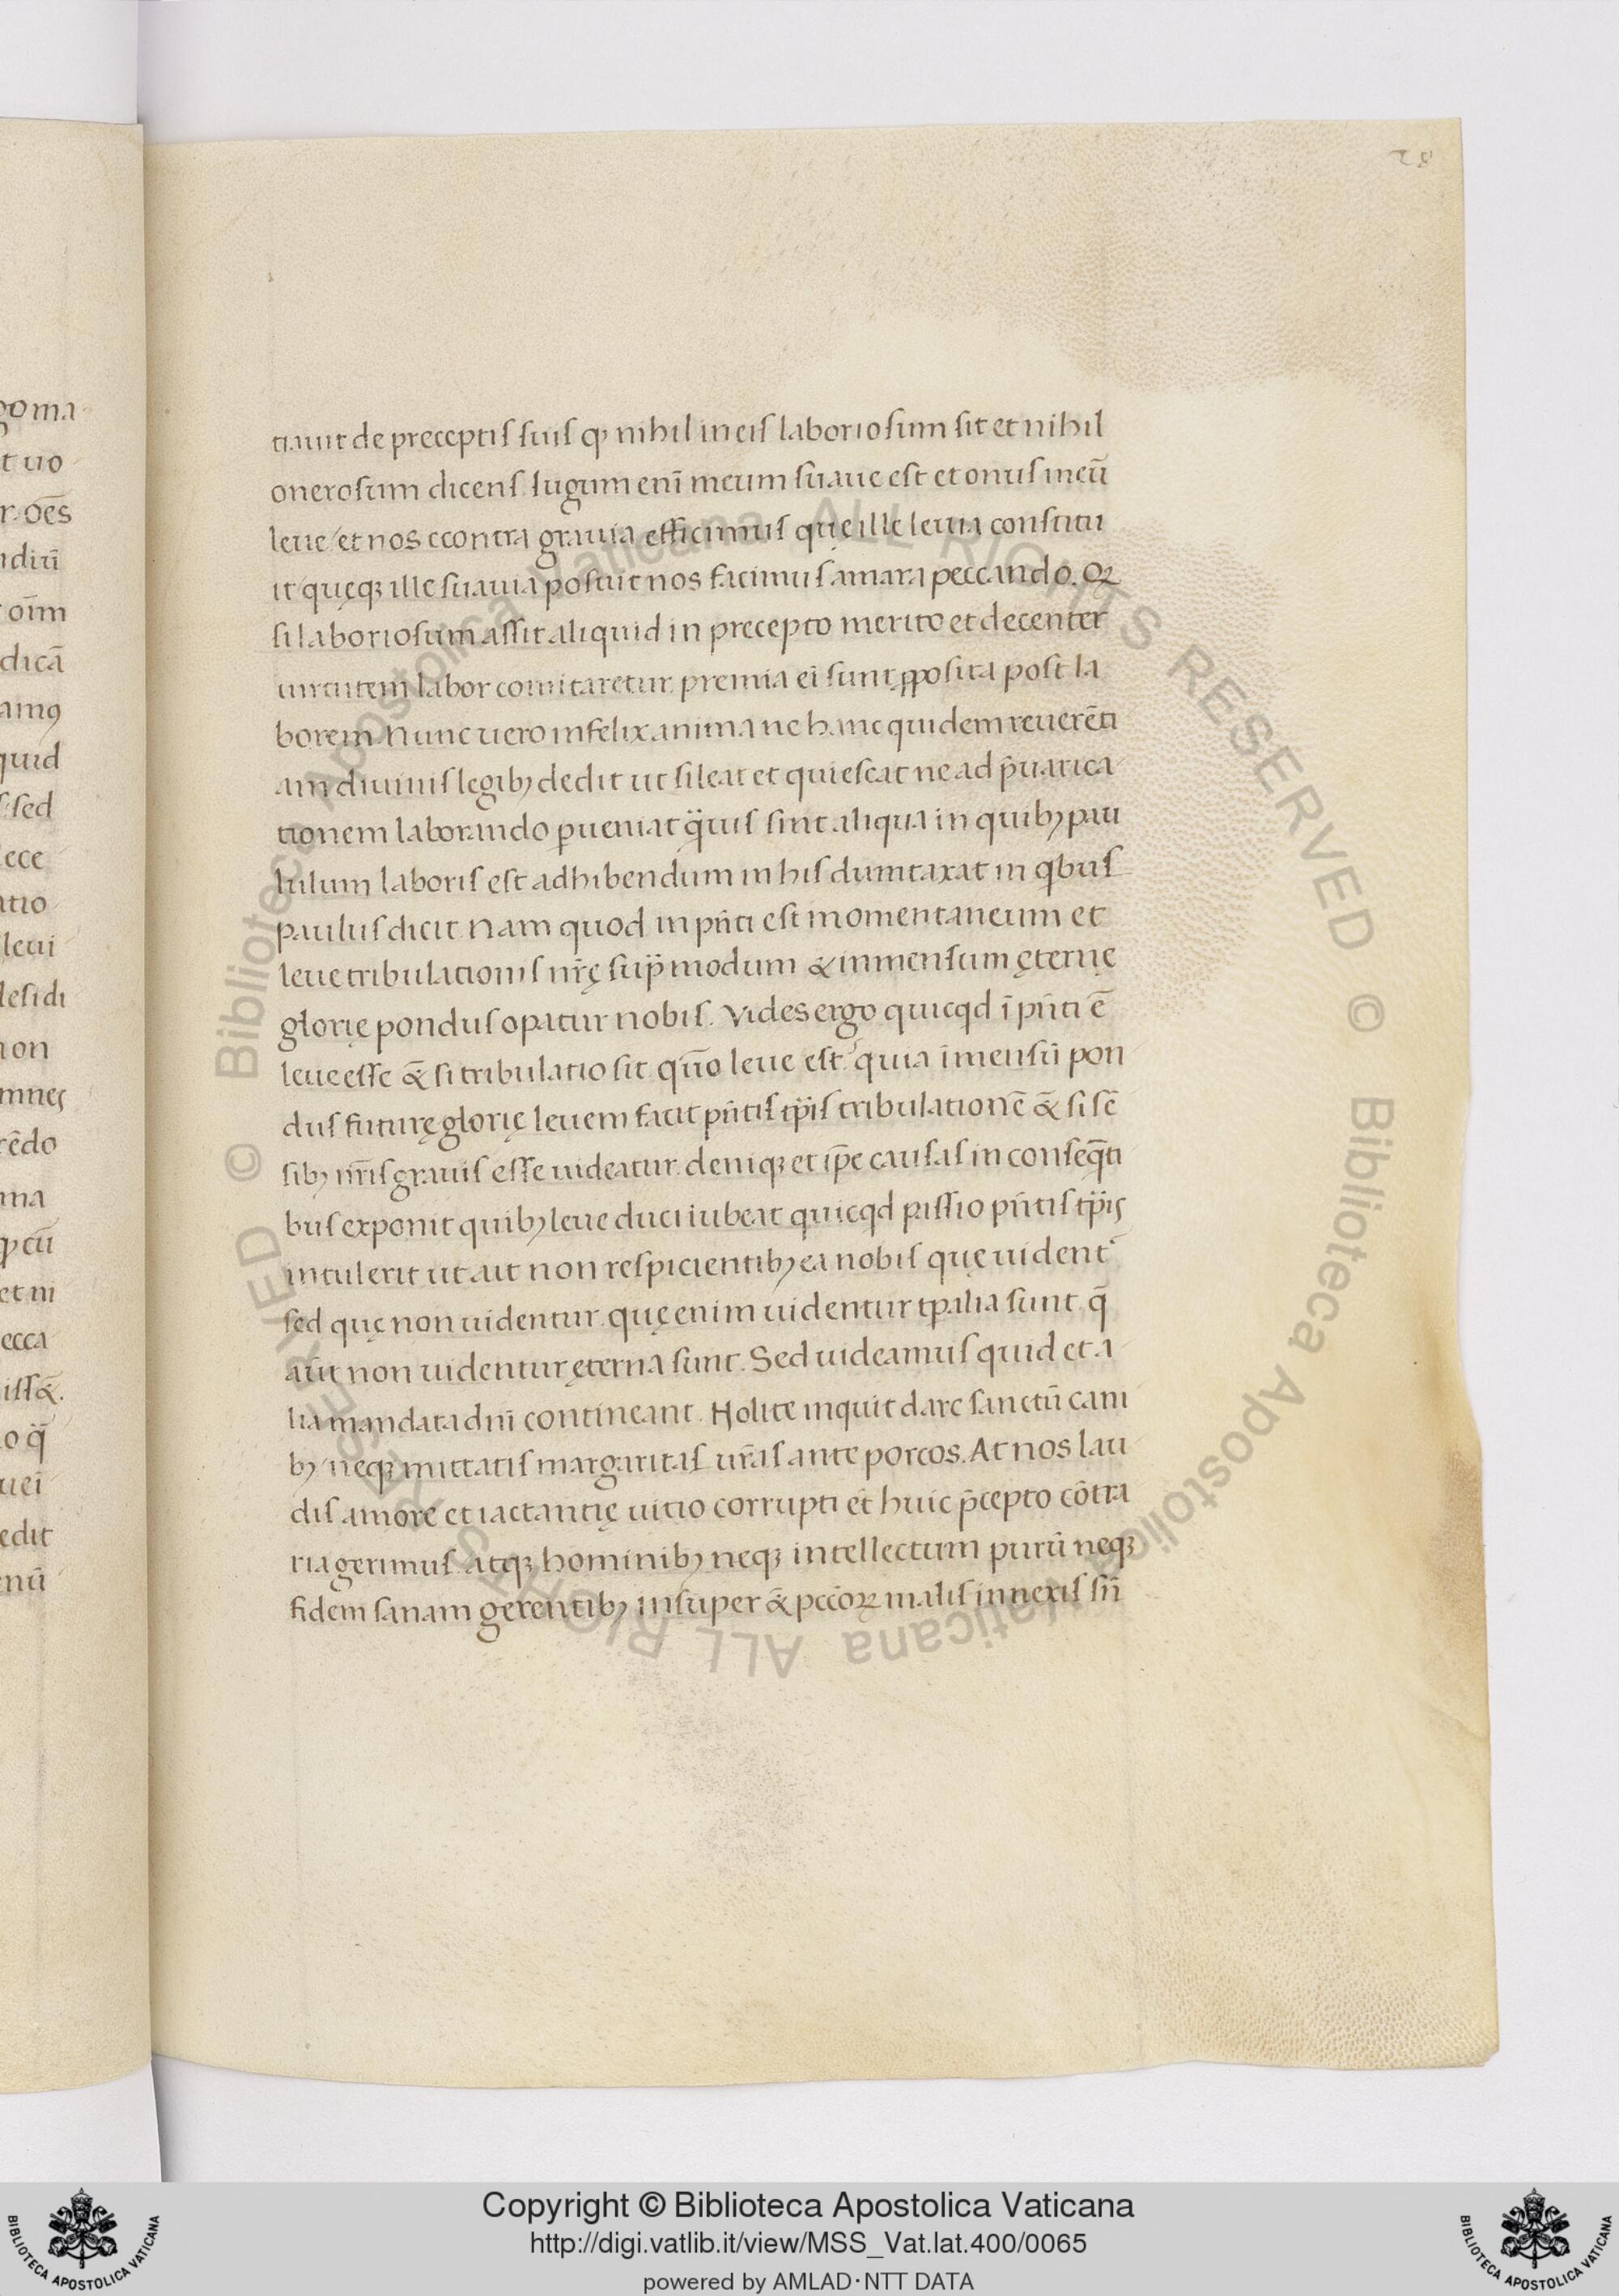 28
tiauit de preceptis suis ꝙ nihil in eis laboriosum sit et nihil
onerosum dicens. Iugum enī meum suaue est et onus meū
leue / et nos econtra grauia efficimus quę ille leuia constitu
it / quęqꝫ ille suauia posuit nos facimus amara peccando. Qꝛ
si laboriosum assit aliquid in precepto merito et decenter
uirtutem labor comitaretur. premia ei sunt ꝓposita post la
borem. Nunc uero infelix anima ne hanc quidem reuerēti
am diuinis legibꝫ dedit ut sileat et quiescat ne ad p̄uarica
tionem laborando ꝑueniat q̄uis sint aliqua in quibꝫ pau
lulum laboris est adhibendum in his dumtaxat in qͥbus
paulus dicit. Nam quod in pn̄ti est momentaneum et
leue tribulationis nr̄ę sup̄ modum & inmensum ęternę
glorię pondus oꝑatur nobis. Vides ergo quicqͥd ī pn̄ti ē
leue esse &̄ si tribulatio sit quō leue est? quia īmensū pon
dus futurę glorię leuem facit pn̄tis tꝑis tribulationē &̄ si sē
sibꝫ nr̄is grauis esse uideatur. deniqꝫ et ip̄e causas in conseq̄ti
bus exponit quibꝫ leue duci iubeat quicqͥd passio pn̄tis tꝑis
intulerit ut ait non respicientibꝫ ea nobis quę uident᷑
sed quę non uidentur. quę enim uidentur tꝑalia sunt. q̄
aūt non uidentur ęterna sunt. Sed uideamus quid et a
lia mandata dn̄i contineant. Nolite inquit dare sanctū cani
bꝫ / neqꝫ mittatis margaritas ur̄as ante porcos. At nos lau
dis amore et iactantię uitio corrupti et huic p̄cepto cōtra
ria gerimus. atqꝫ hominibꝫ neqꝫ intellectum purū neqꝫ
fidem sanam gerentibꝫ insuper &̄ pccōꝝ malis innexis sn̄
goma
t uo
r. oēs
ndirū
oīm
dicā
amꝰ
quid
s: sed
ece
atio
leui
lesidi
non
mnes
rēdo
ma
ꝓcū
et ni
ecca
iss&.
o q̄
uei
edit
enū
© Biblioteca Apostolica Vaticana ALL RIGHTS RESERVED © Biblioteca Apostolica Vaticana ALL RIGHTS RESERVED
Copyright © Biblioteca Apostolica Vaticana
http://digi.vatlib.it/view/MSS_Vat.lat.400/0065
powered by AMLAD·NTT DATA
BIBLIOTECA APOSTOLICA VATICANA
BIBLIOTECA APOSTOLICA VATICANA